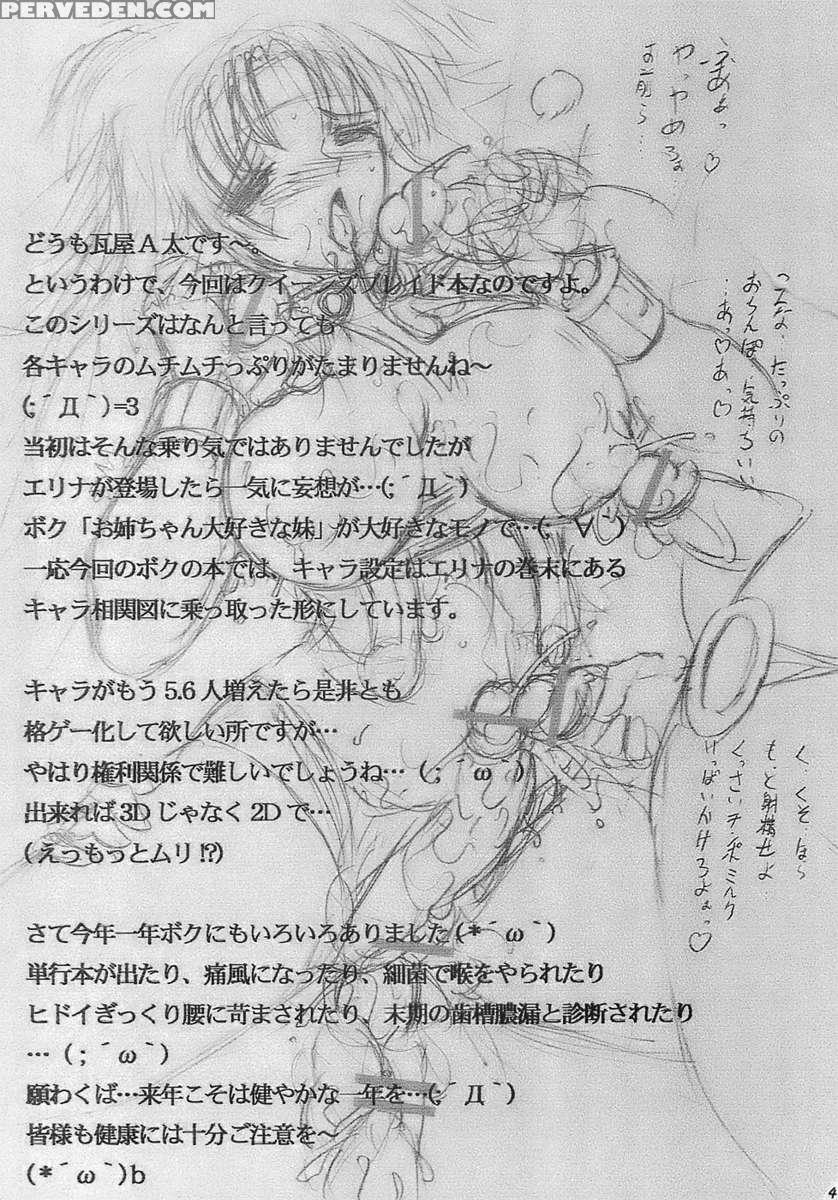 PERVEDEN.COM
どうも瓦屋A太です～。
というわけで、今回はクイーンズブレイド本なのですよ。
このシリーズはなんと言っても
各キャラのムチムチっぷりがたまりませんね～
(;´Д｀)=3
当初はそんな乗り気ではありませんでしたが
エリナが登場したら一気に妄想が…(;´Д｀)
ボク「お姉ちゃん大好きな妹」が大好きなモノで…(;´∀｀)
一応今回のボクの本では、キャラ設定はエリナの巻末にある
キャラ相関図に乗っ取った形にしています。
キャラがもう5.6人増えたら是非とも
格ゲー化して欲しい所ですが…
やはり権利関係で難しいでしょうね…（;´ω｀）
出来れば3Dじゃなく2Dで…
(えっもっとムリ!?)
さて今年一年ボクにもいろいろありました(*´ω｀)
単行本が出たり、痛風になったり、細菌で喉をやられたり
ヒドイぎっくり腰に苛まされたり、末期の歯槽膿漏と診断されたり
…（;´ω｀）
願わくば…来年こそは健やかな一年を…(;´Д｀)
皆様も健康には十分ご注意を～
(*´ω｀)b
ふあぁっ♡
やっやめろぉ…
お前ら…
こんな…たっぷりの
おちんぽ、気持ちいい
…あっ♡あっ♡
く…くそ…ほら
もっと射精せよ…
くっさいチ・ポミルク
けっぱいかけろよぉっ♡
4